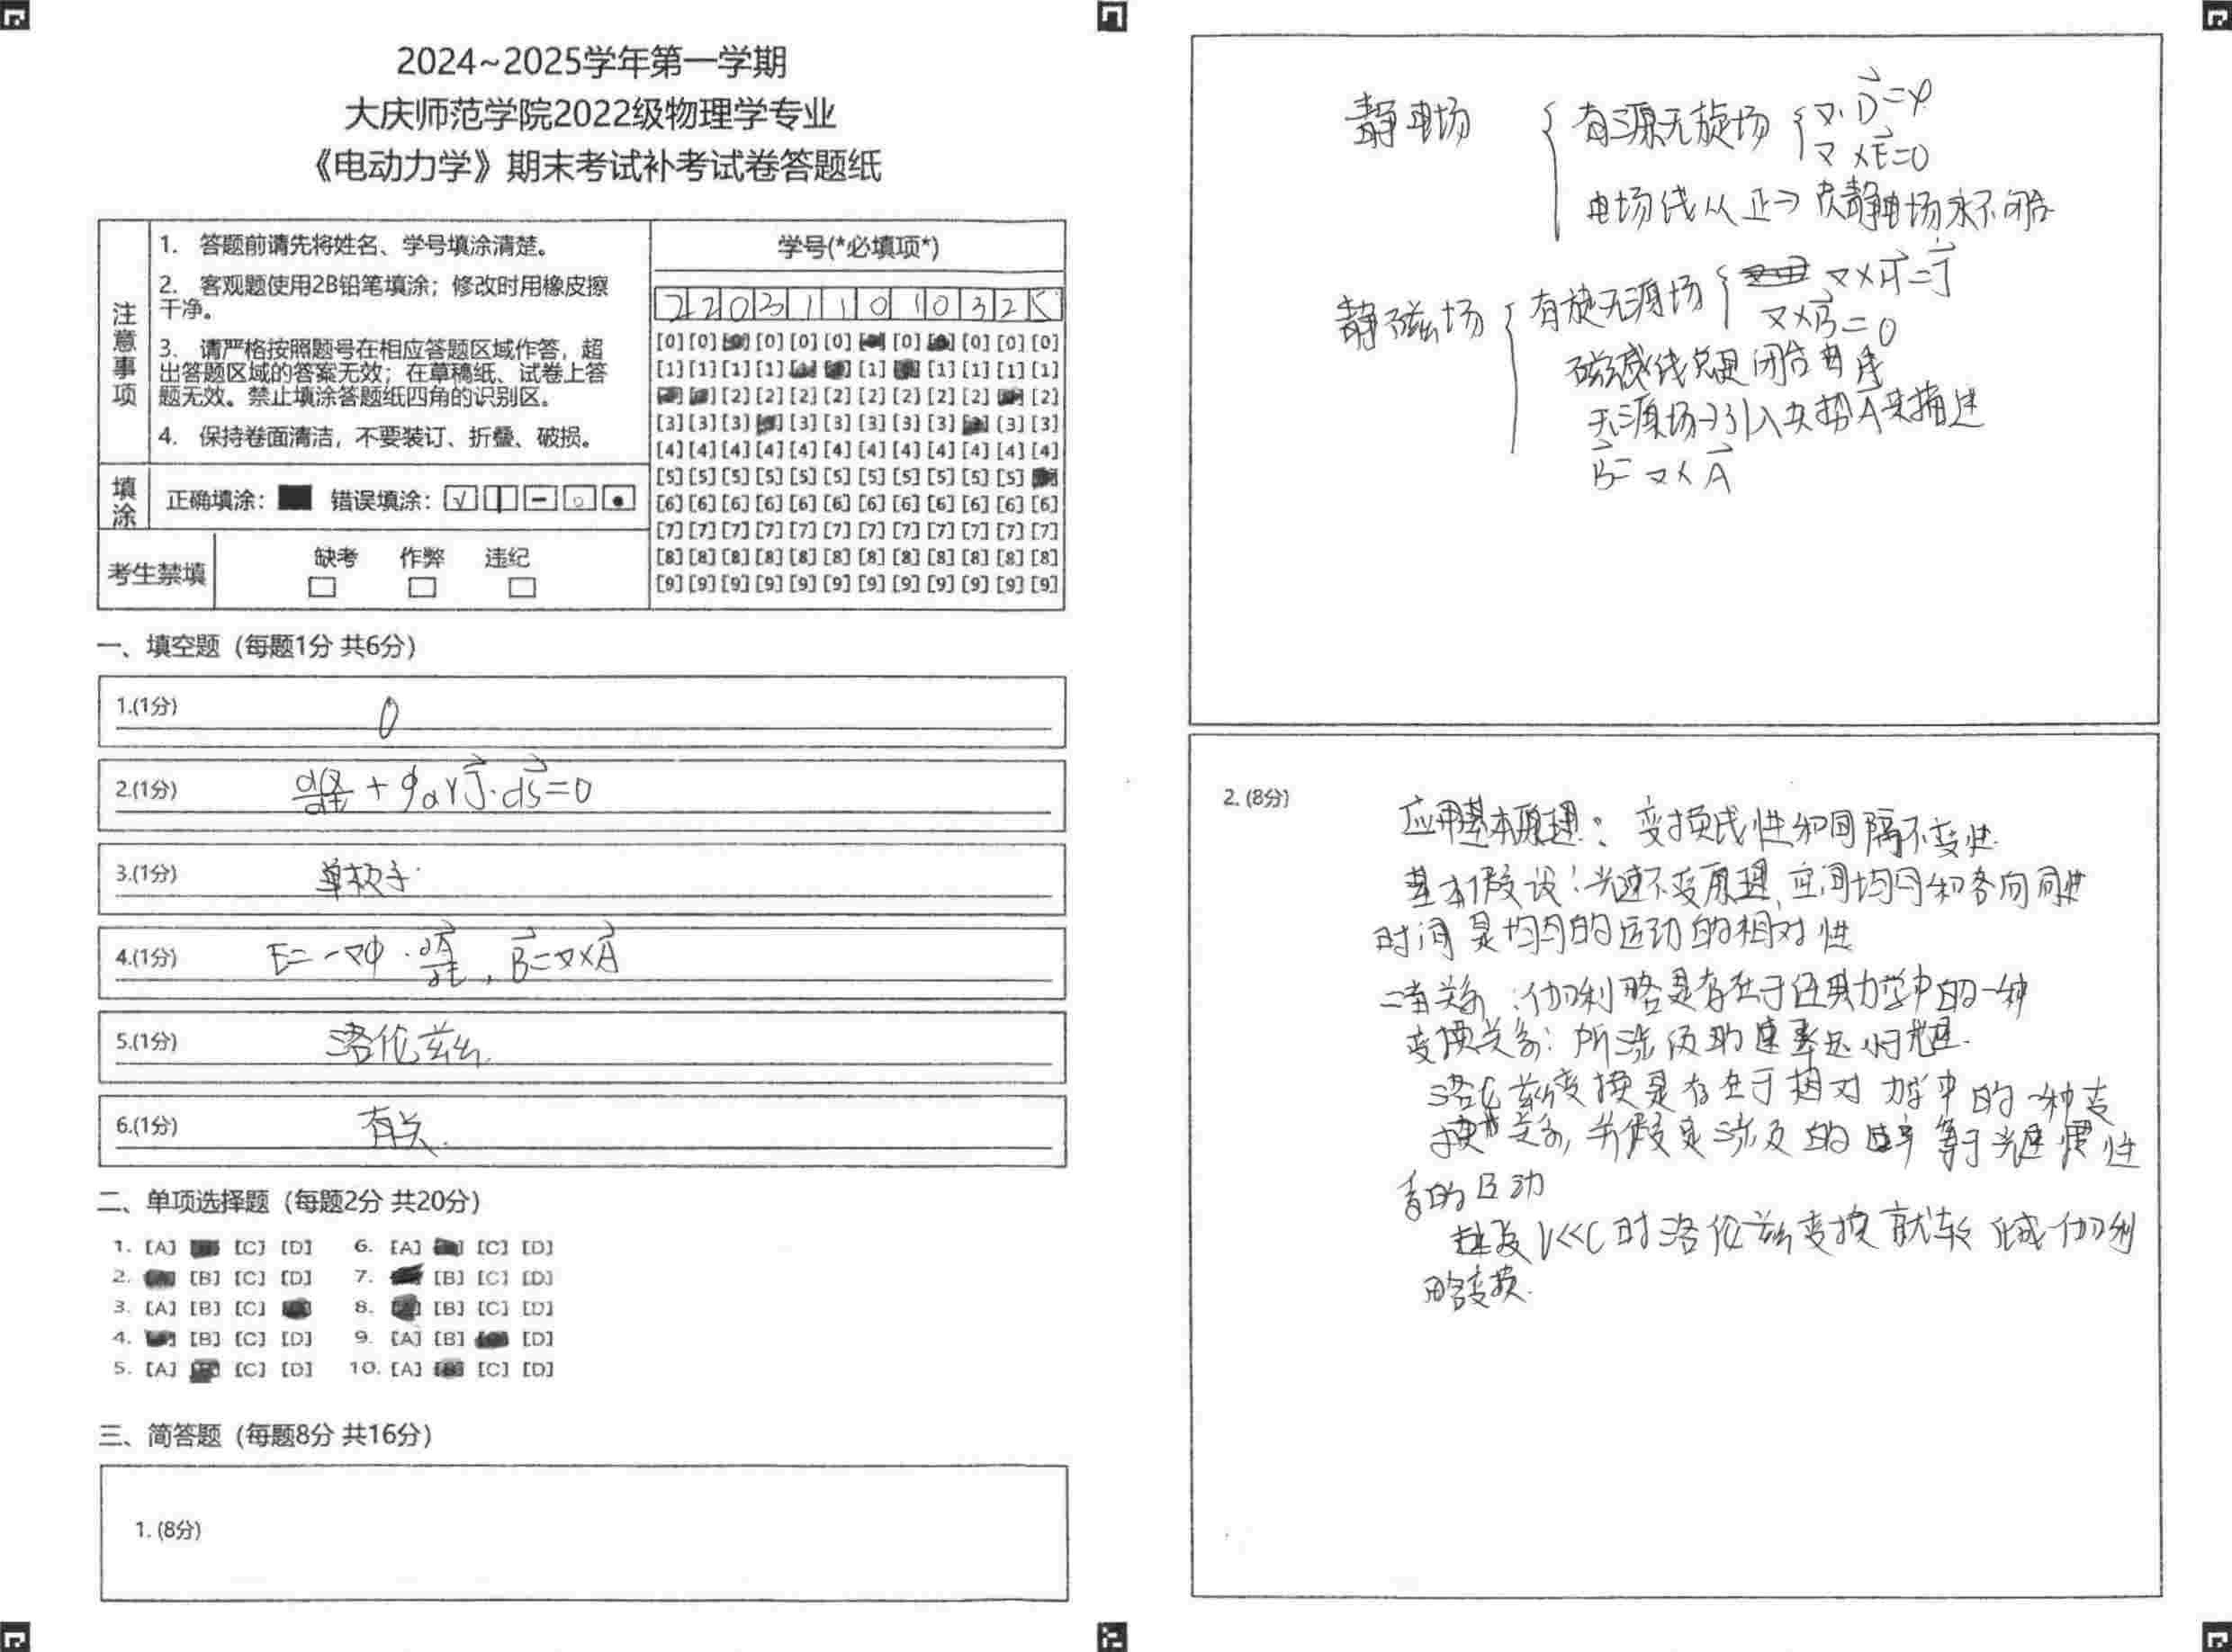 2024~2025学年第一学期
大庆师范学院2022级物理学专业
《电动力学》期末考试补考试卷答题纸
注意事项
1. 答题前请先将姓名、学号填涂清楚。
2. 客观题使用2B铅笔填涂；修改时用橡皮擦
干净。
3. 请严格按照题号在相应答题区域作答，超
出答题区域的答案无效；在草稿纸、试卷上答
题无效。禁止填涂答题纸四角的识别区。
4. 保持卷面清洁，不要装订、折叠、破损。
填涂
正确填涂： 错误填涂：
考生禁填
缺考 作弊 违纪
学号(*必填项*)
2 2 0 3 1 1 0 1 0 3 2 5
[0] [0] [0] [0] [0] [0] [0] [0] [0] [0]
[1] [1] [1] [1] [1] [1] [1] [1] [1]
[2] [2] [2] [2] [2] [2] [2] [2] [2]
[3] [3] [3] [3] [3] [3] [3] [3] [3] [3]
[4] [4] [4] [4] [4] [4] [4] [4] [4] [4] [4] [4]
[5] [5] [5] [5] [5] [5] [5] [5] [5] [5] [5]
[6] [6] [6] [6] [6] [6] [6] [6] [6] [6] [6] [6]
[7] [7] [7] [7] [7] [7] [7] [7] [7] [7] [7] [7]
[8] [8] [8] [8] [8] [8] [8] [8] [8] [8] [8] [8]
[9] [9] [9] [9] [9] [9] [9] [9] [9] [9] [9] [9]
一、填空题（每题1分 共6分）
1.(1分) 0
2.(1分) dQ/dt + ∮ J⃗·dS⃗=0
3.(1分) 单极子
4.(1分) E=-∇φ·∂A⃗/∂t, B⃗=∇×A⃗
5.(1分) 洛伦兹
6.(1分) 有关.
二、单项选择题（每题2分 共20分）
1. [A] [C] [D] 6. [A] [C] [D]
2. [B] [C] [D] 7. [B] [C] [D]
3. [A] [B] [C] 8. [B] [C] [D]
4. [B] [C] [D] 9. [A] [B] [D]
5. [A] [C] [D] 10. [A] [C] [D]
三、简答题（每题8分 共16分）
1. (8分)
静电场 { 有源无旋场 { ∇·D⃗=φ
∇×E⃗=0
电场线从正→负静电场永不闭合
静磁场 { 有旋无源场 { ∇×H⃗=J⃗
∇×B⃗=0
磁感线总是闭合曲
无源场→引入矢势A来描述
B⃗=∇×A⃗
2. (8分)
应用基本原理：变换线性和间隔不变性.
基本假设：光速不变原理,空间均匀和各向同性
时间是均匀的运动的相对性
二者关系：伽利略是存在于经典力学中的一种
变换关系：所涉及的速率远小于光速.
洛伦兹变换是存在于相对力学中的一种变
换关系,并假定涉及的速率等于光速惯性
的
V<<C时洛伦兹变换就转化成伽利
略变换.